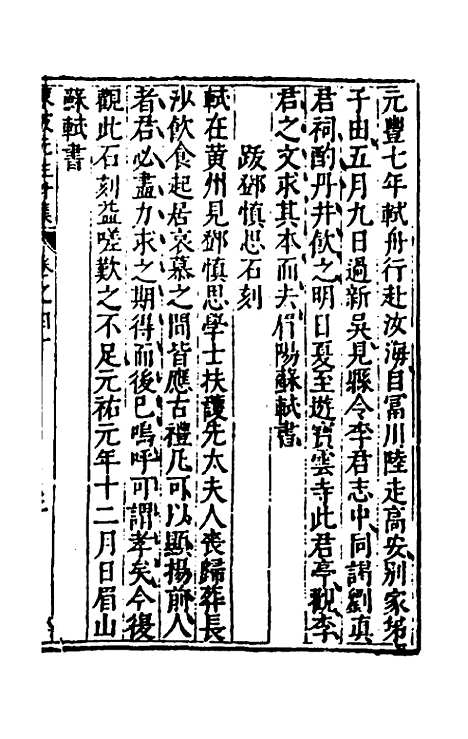 元豐七年軾舟行赴汝海自富川陸走高安別家弟
子由五月九日過新吳見縣令李君志中同謁劉真
君祠酌丹井飲之明日夏至遊寶雲寺此君亭觀李
君之文求其本而去眉陽蘇軾書
跋鄧慎思石刻
軾在黃州見鄧慎思學士扶護先太夫人喪歸葬長
沙飲食起居哀慕之間皆應古禮凡可以顯揚前人
者君必盡力求之期得而後已嗚呼可謂孝矣今復
觀此石刻益嗟歎之不足元祐元年十二月日眉山
蘇軾書
東坡先生外集 卷之四十